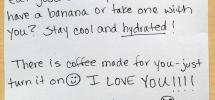 have a banana or take one with
you? Stay cool and hydrated!
There is coffee made for you - just
turn it on☺ I LOVE YOU!!!!